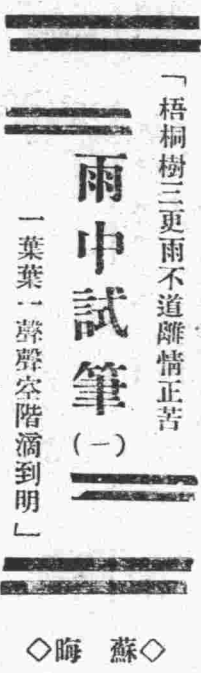 「梧桐樹三更雨不道離情正苦
雨中試筆(一)
一葉葉一聲聲空階滴到明」
◇蘇 晦◇